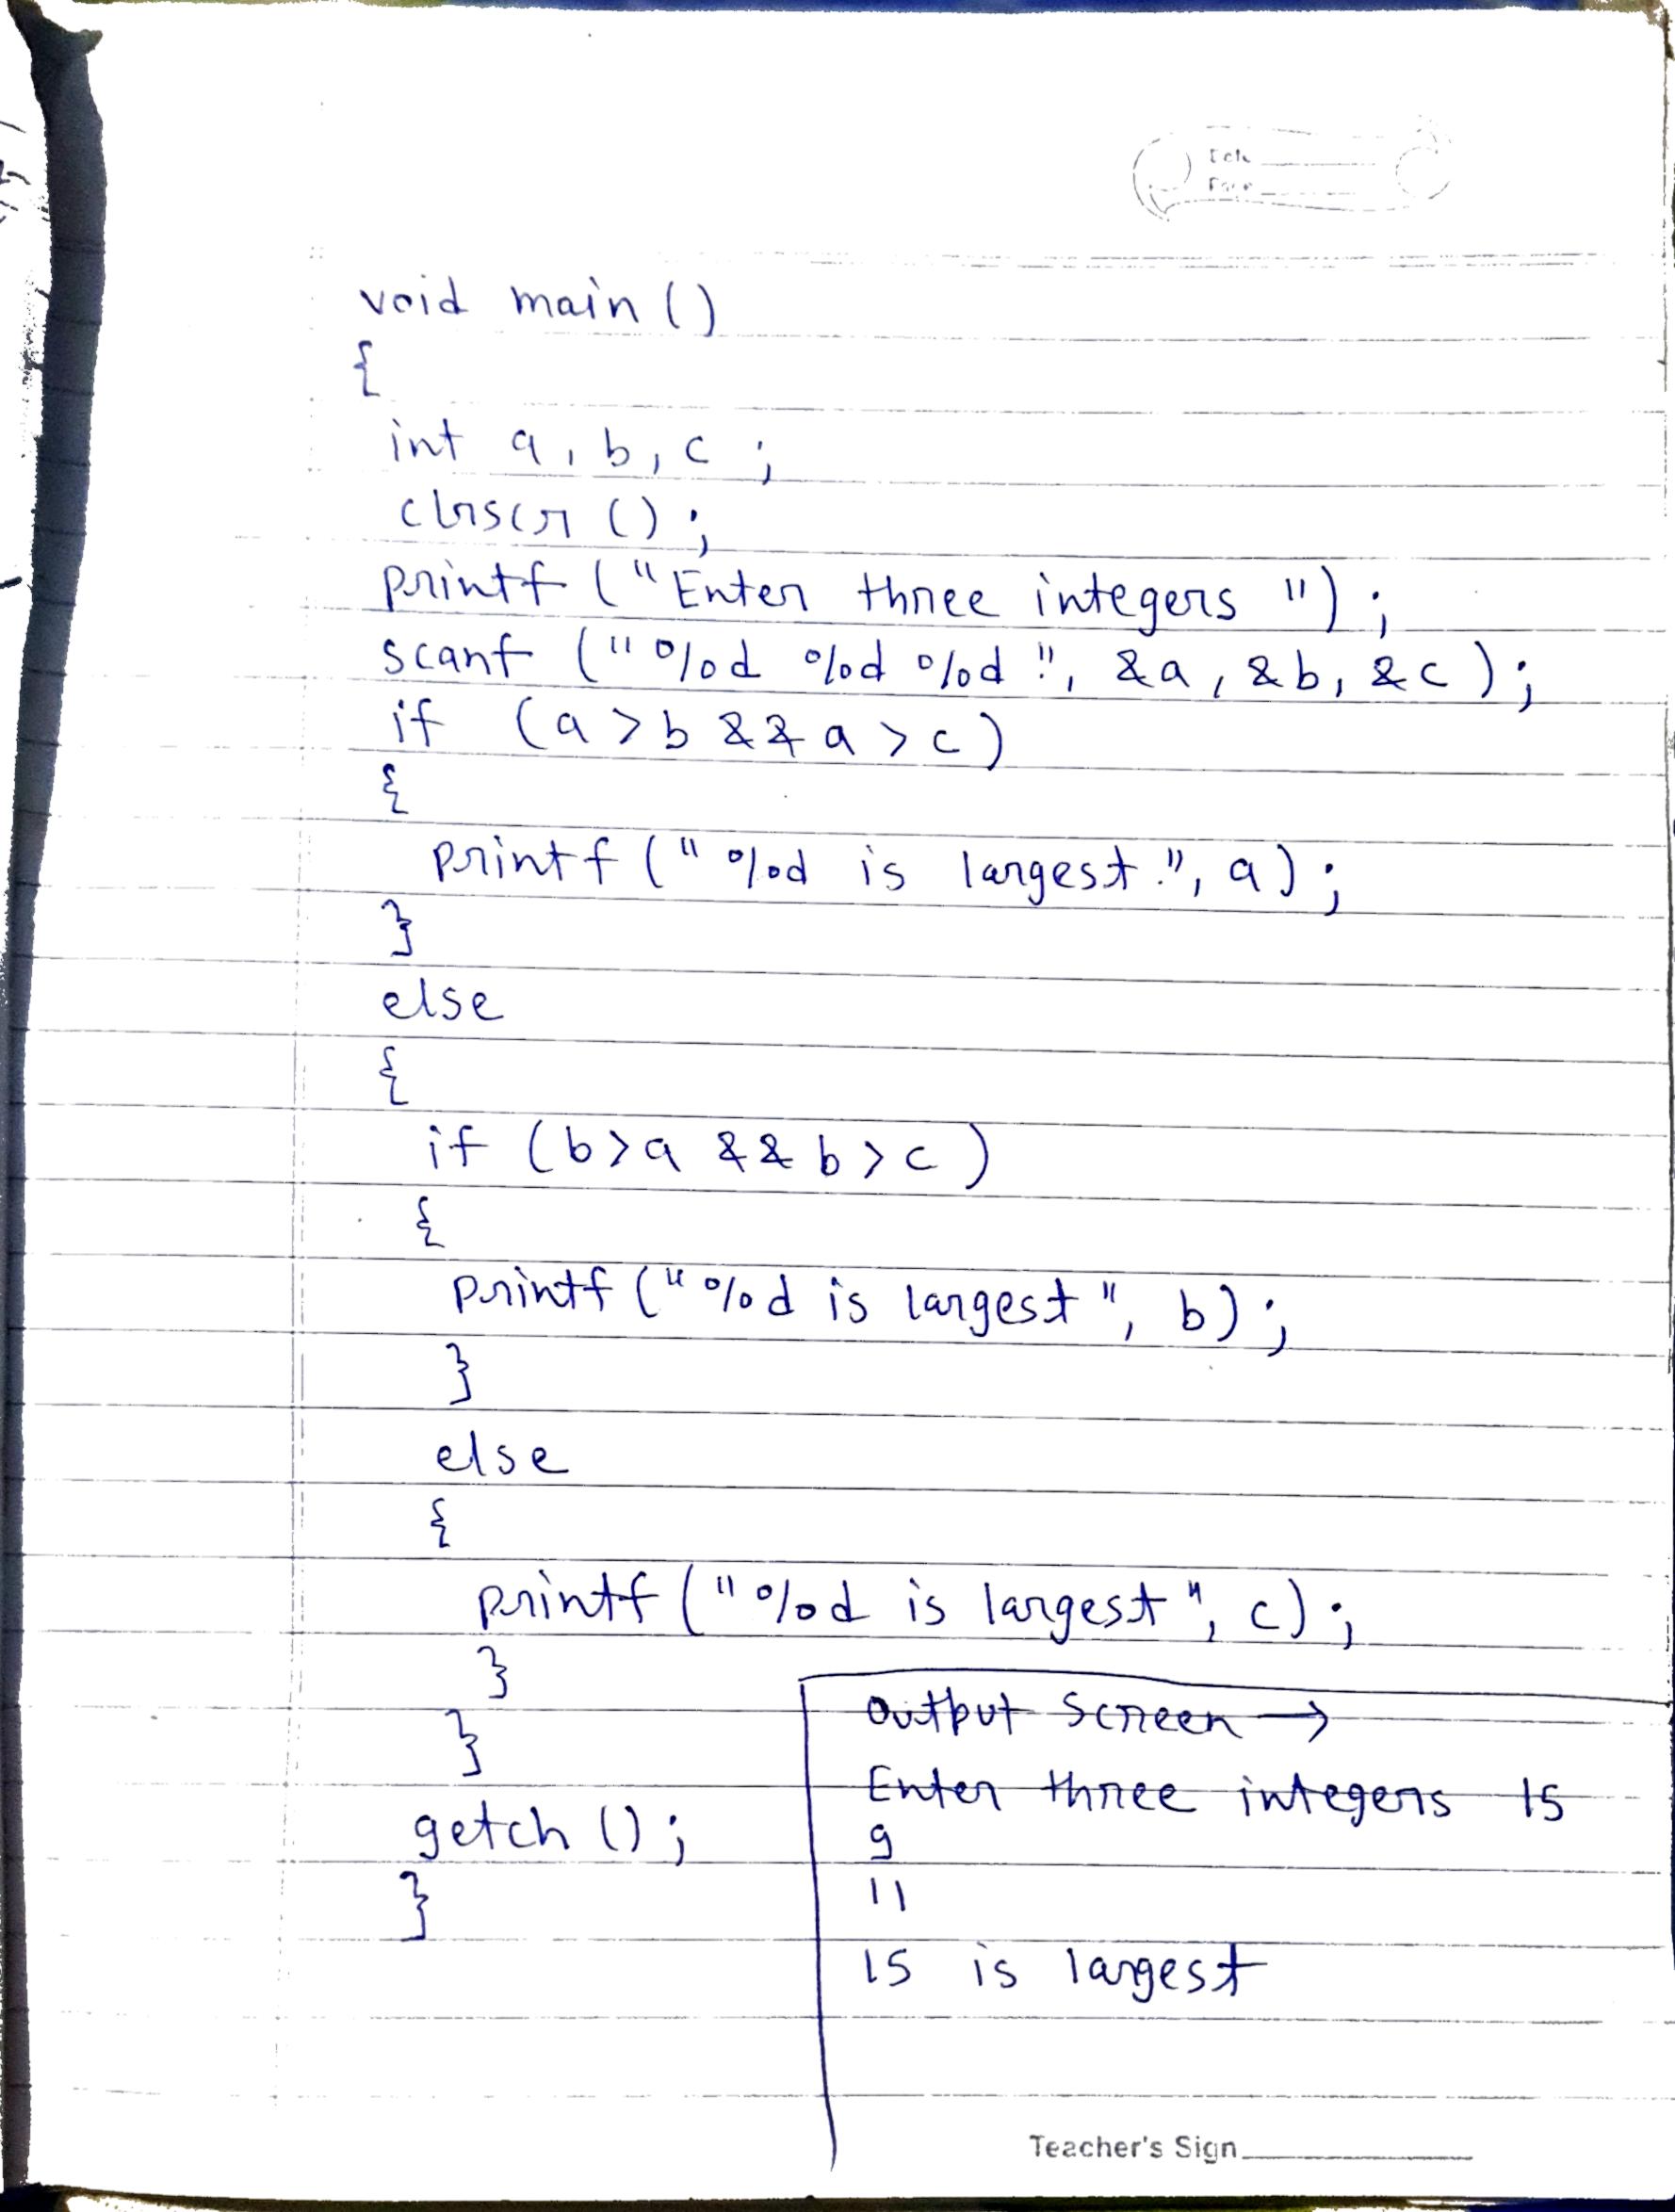 void main ()
{
int a, b, c ;
clrscr () ;
printf ("Enter three integers ") ;
scanf ("%d %d %d ", &a, &b, &c) ;
if (a > b && a > c)
{
printf ("%d is largest.", a) ;
}
else
{
if (b>a && b>c)
{
printf ("%d is largest", b) ;
}
else
{
printf ("%d is largest", c) ;
}
}
getch () ;
}
Output Screen →
Enter three integers 15
9
11
15 is largest
Teacher's Sign